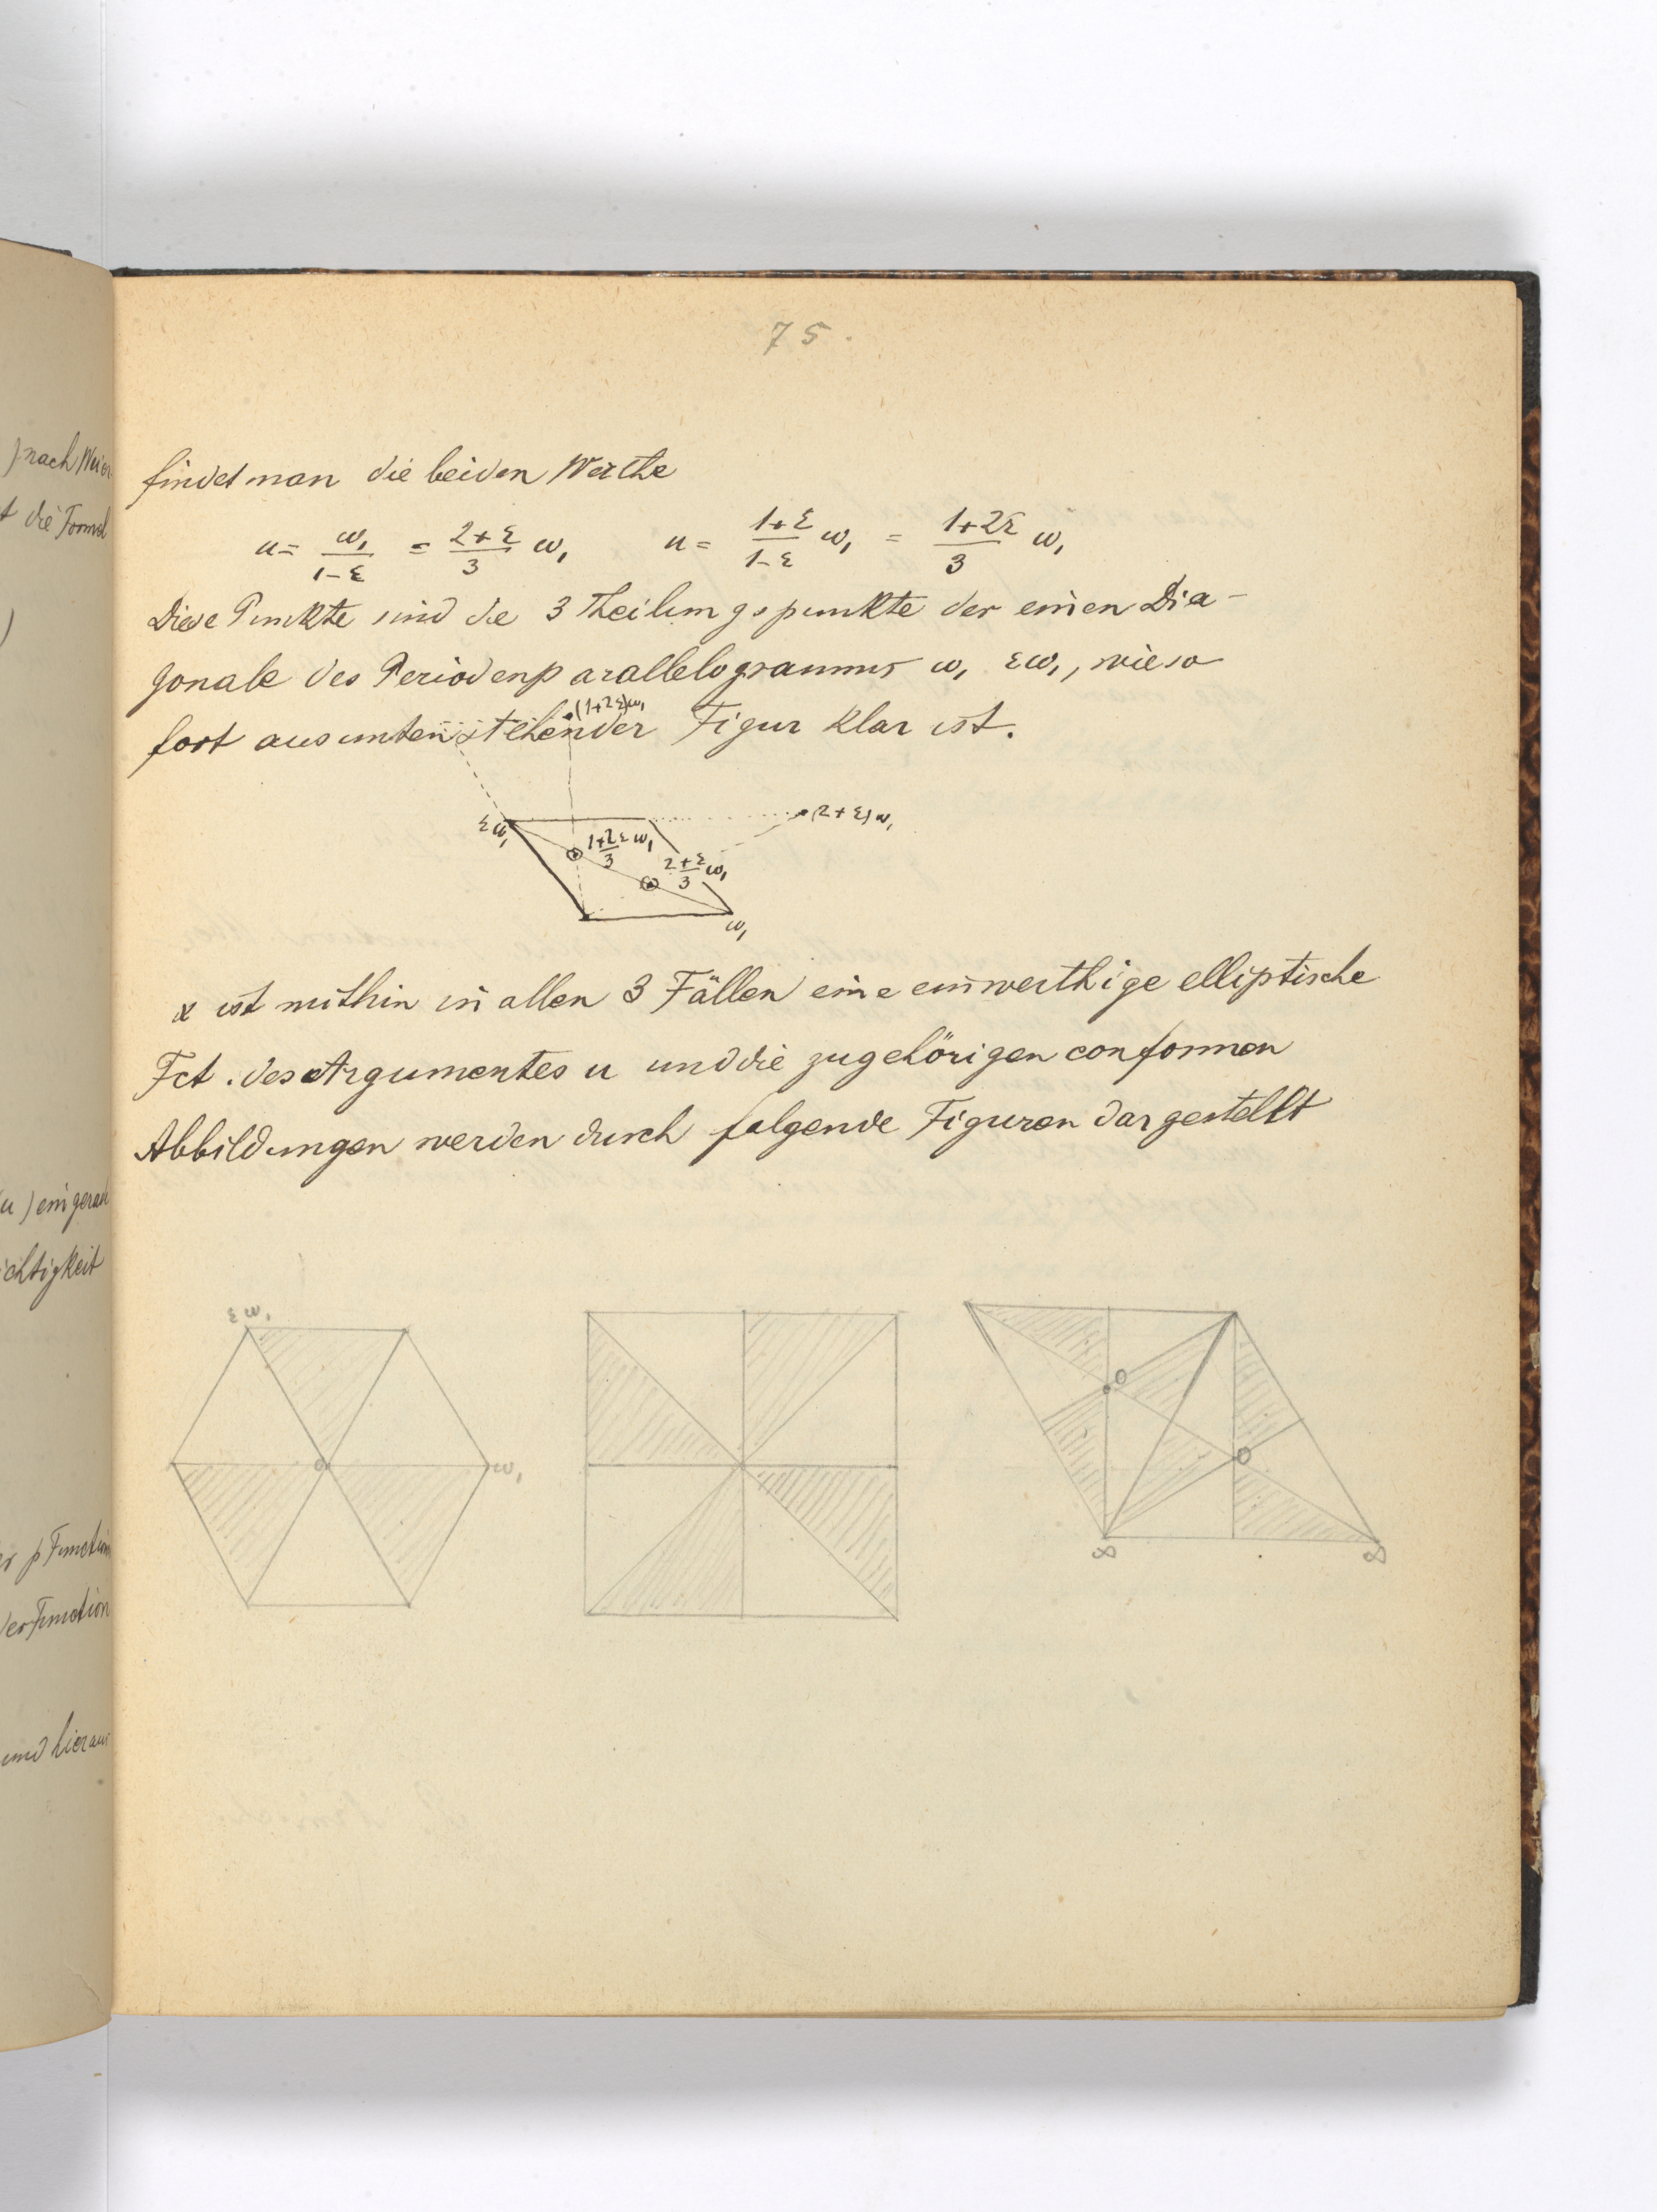 75.
) nach Weier
t die Formel
)
u) ein gerade
ichtigkeit
er p Function
der Function
und hieraus
findet man die beiden Werthe
u = ω₁/(1-ε) = (2+ε)/3 ω₁   u = (1+ε)/(1-ε) ω₁ = (1+2ε)/3 ω₁
Diese Punkte sind die 3 Theilungspunkte der einen Dia-
gonale des Periodenparallelogramms ω₁ εω₁, wie so
fort aus untenstehender Figur klar ist.
(1+2ε)ω₁
εω₁
(2+ε)ω₁
(1+2ε)/3 ω₁
(2+ε)/3 ω₁
ω₁
x ist mithin in allen 3 Fällen eine einwerthige elliptische
Fct. des Argumentes u und die zugehörigen conformen
Abbildungen werden durch folgende Figuren dargestellt
εω₁
0
ω₁
0
0
∞
∞